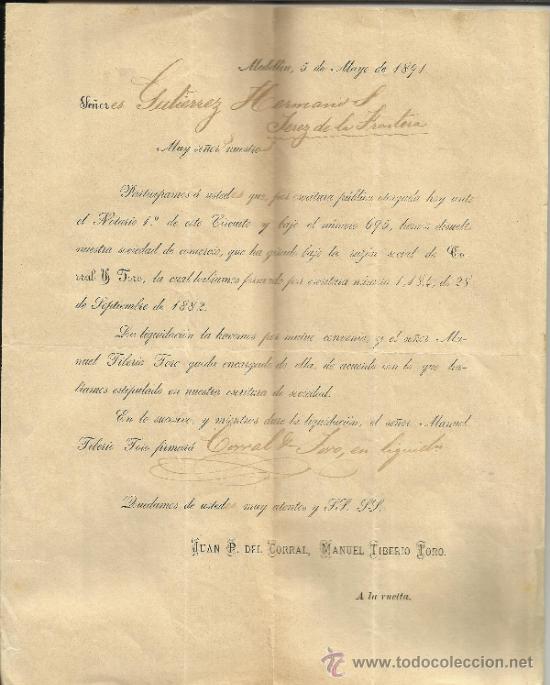 Medellín, 5 de Mayo de 1891
Señores Gutierrez Hermanos
Jerez de la Frontera
Muy señores nuestros
Participamos á ustedes que, por escritura pública otorgada hoy ante
el Notario 1.º de este Circuito y bajo el número 695, hemos disuelto
nuestra sociedad de comercio, que ha girado bajo la razón social de Co-
rral & Toro, la cual habíamos formado por escritura número 1,184, de 28
de Septiembre de 1882.
La liquidación la hacemos por mutuo convenio, y el señor Ma-
nuel Tiberio Toro queda encargado de ella, de acuerdo con lo que ha-
bíamos estipulado en nuestra escritura de sociedad.
En lo sucesivo, y mientras dure la liquidación, el señor Manuel
Tiberio Toro firmará Corral & Toro, en liquidn
Quedamos de ustedes muy atentos y SS. SS.
JUAN P. DEL CORRAL, MANUEL TIBERIO TORO.
A la vuelta.
todocoleccion
www.todocoleccion.net